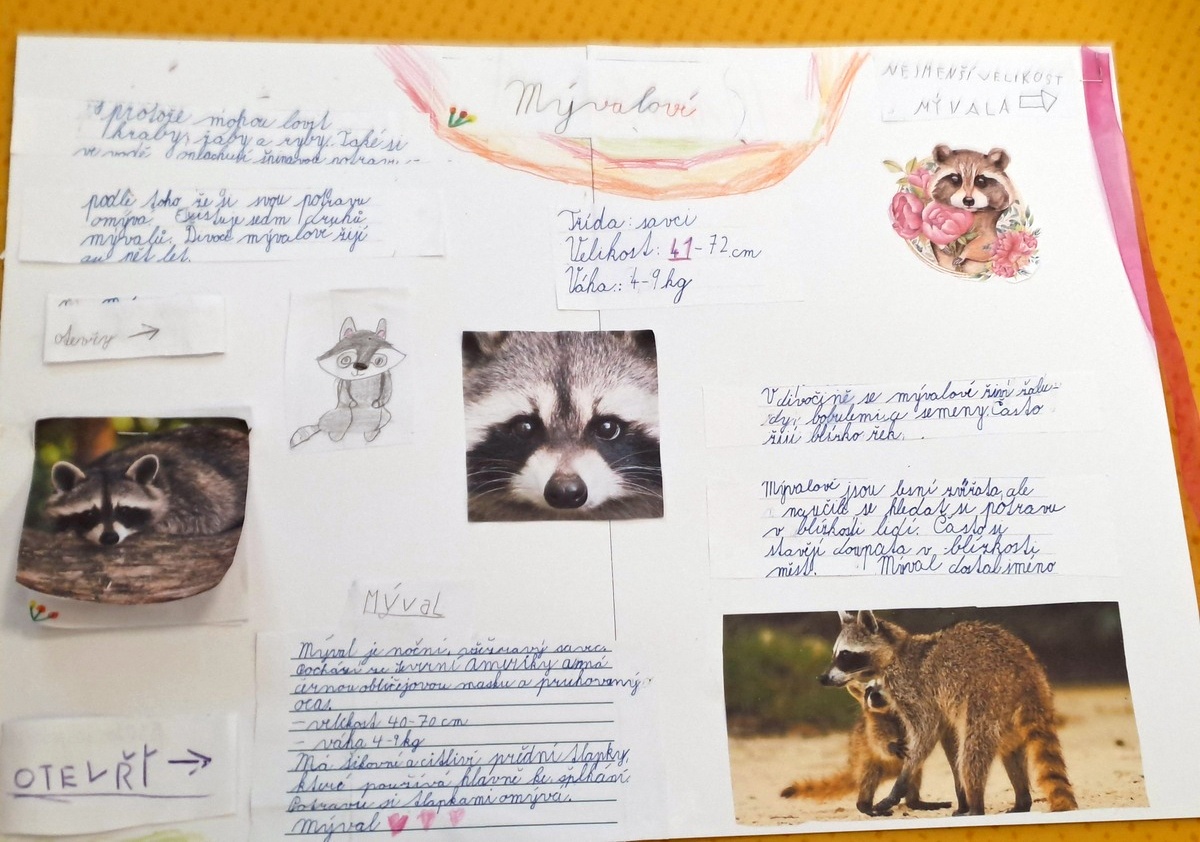 Mývalovi
NEJMENŠÍ VELIKOST
MÝVALA
protože mohou lovit
kraby, žáby a ryby. Také si
ve vodě
podle toho že ji svou potravu
omývá. Existuje sedm druhů
mývalů. Divocí mývalové žijí
pět let.
otevřy
Třída: savci
Velikost: 41-72 cm
Váha: 4-9kg
V divočině se mývalové živí žalu-
dy, bobulemi a semeny. Často
žijí blízko řek.
Mývalovi jsou lesní zvířata, ale
naučili se hledat si potravu
v blízkosti lidí. Často si
stavějí doupata v blízkosti
měst. Mýval dostal jméno
Mýval
Mýval je noční, savec.
Pochází ze Severní Ameriky a má
černou obličejovou masku a pruhovaný
ocas.
- velikost 40-70 cm
- váha 4-9kg
Má šikovné a citlivé přední tlapky,
které používá hlavně ke šplhání.
Potravu si tlapkami omývá.
Mýval
OTEVŘÍ